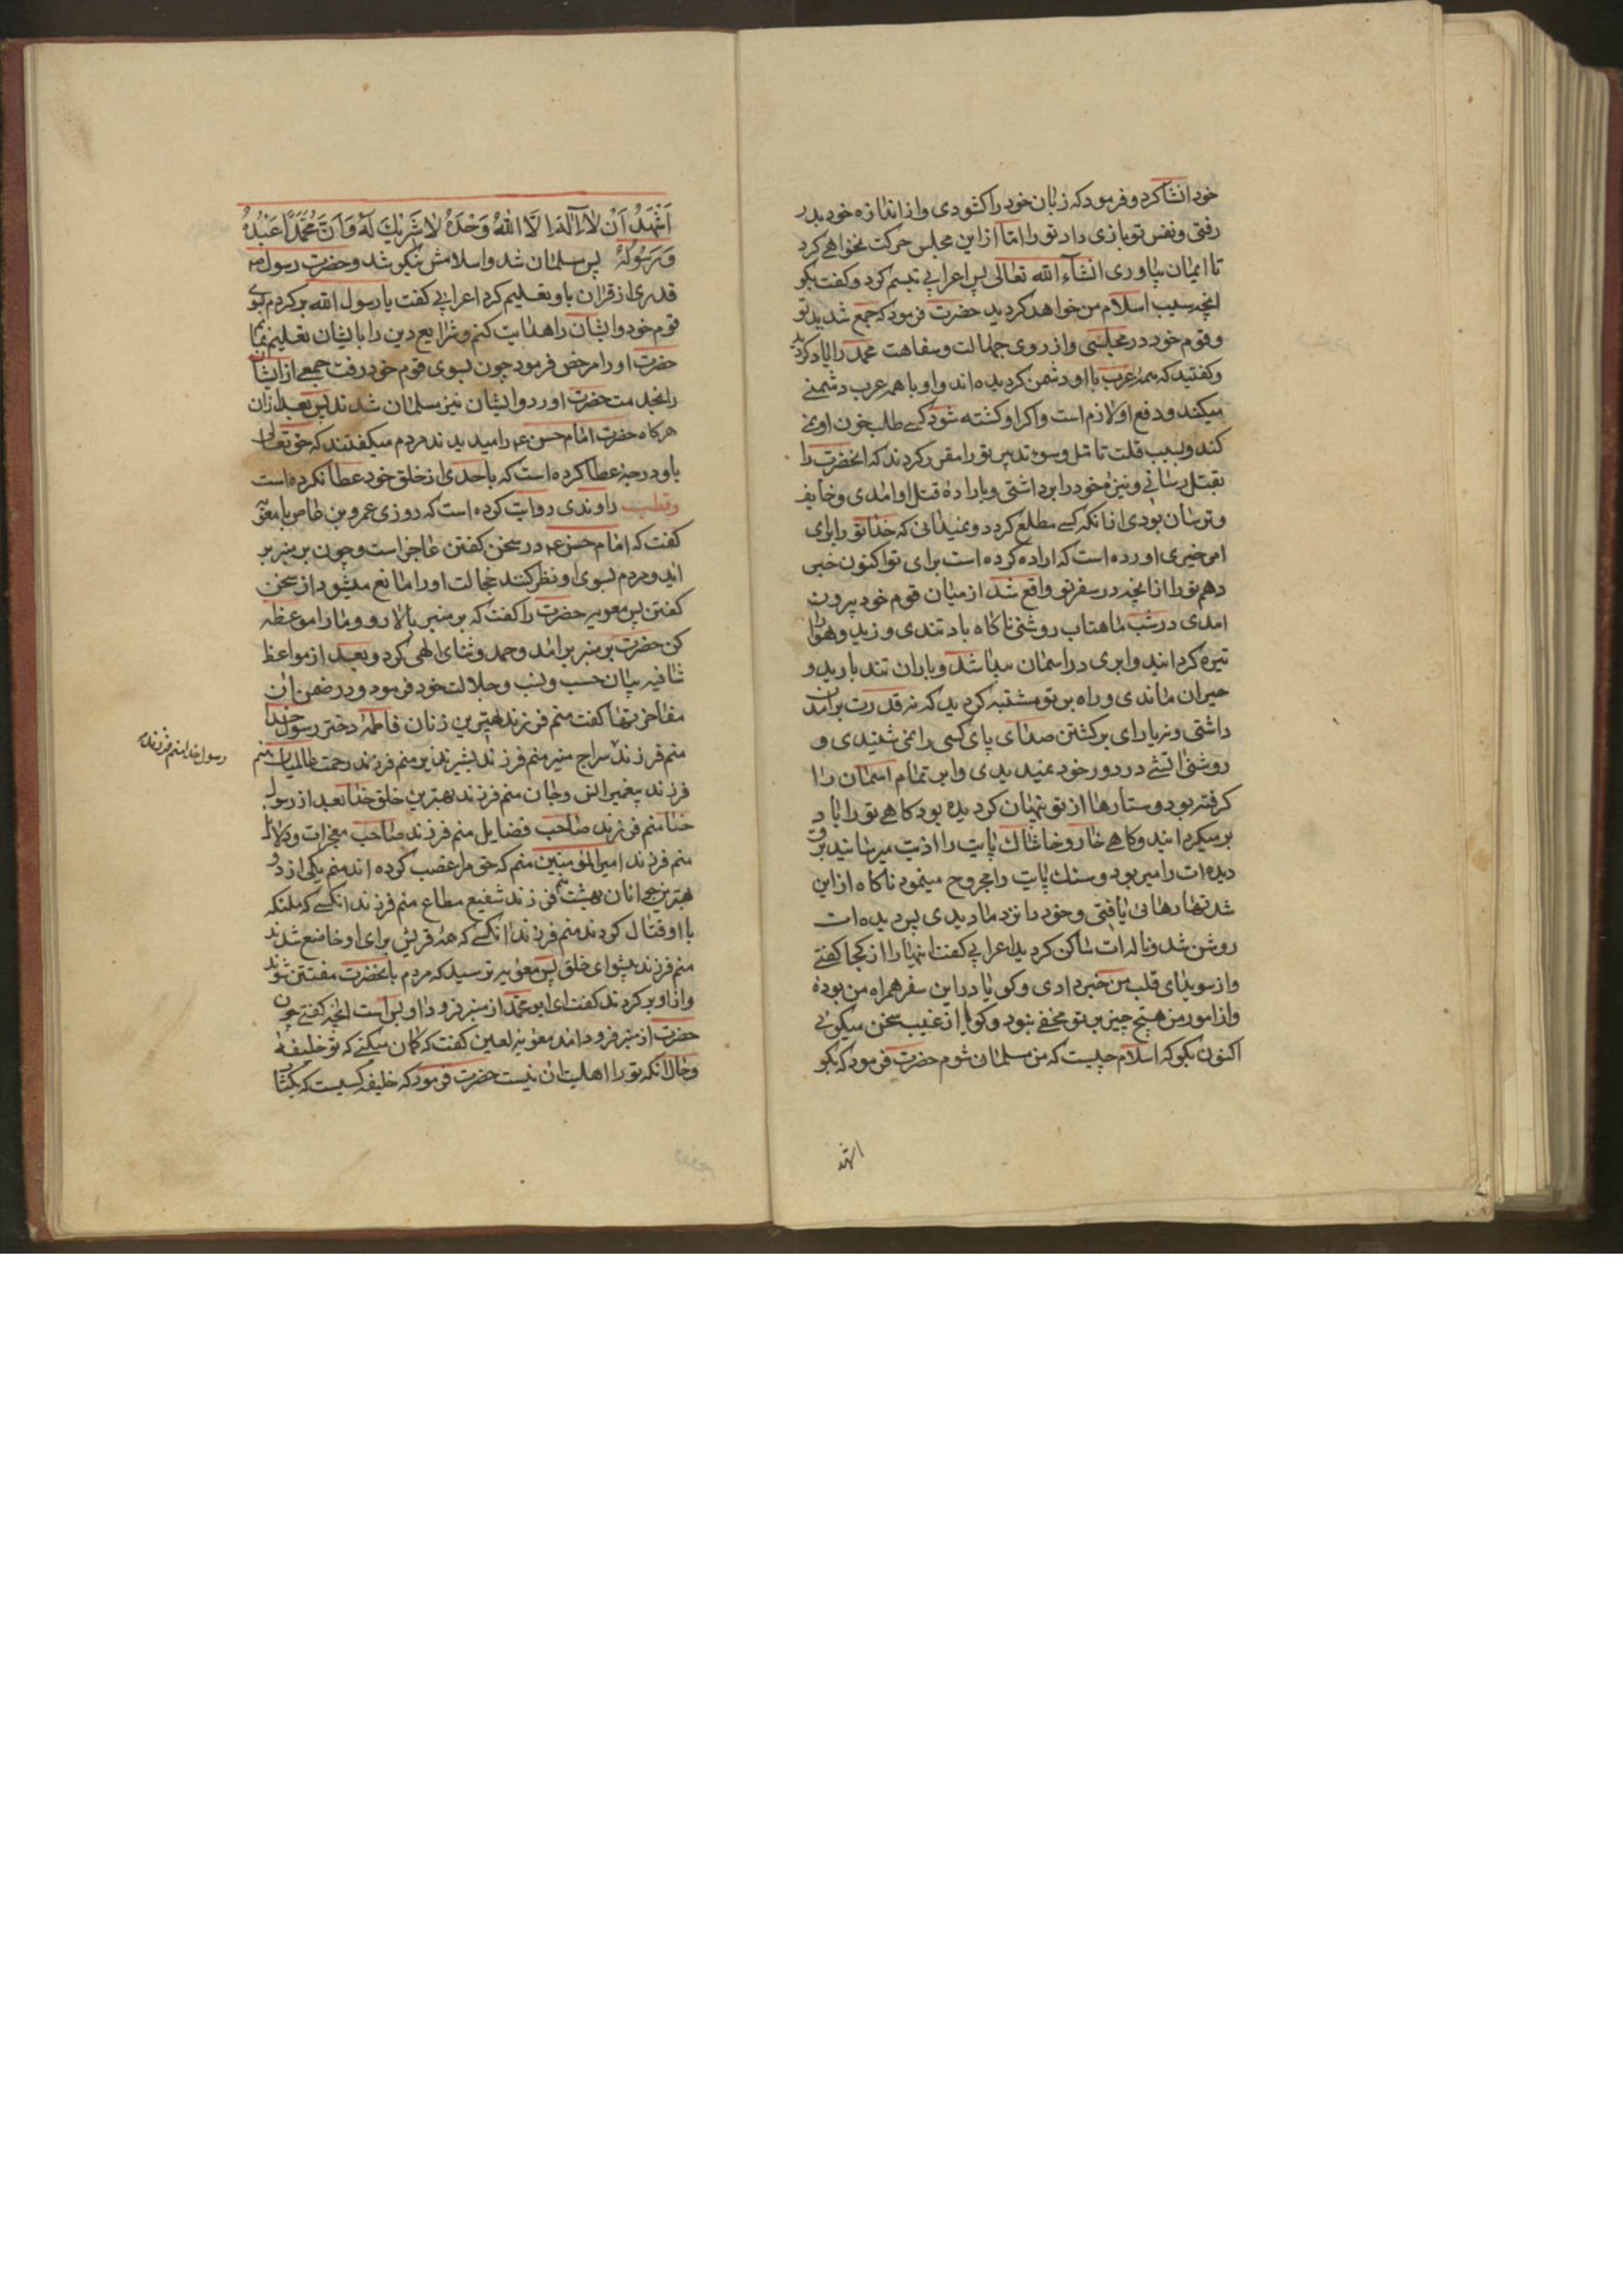 خود انشا کرد و فرمود که زبان خود را کشودی و از اندازه خود بدر
رفتی و نفس تو بازی داد تو را اما از این مجلس حرکت نخواهی کرد
تا ایمان بیاوری انشآء الله تعالی پس اعرابی تبسم کرد و کفت بکو
انچه سبب اسلام من خواهد کردید حضرت فرمود که جمع شدید تو
و قوم خود در مجلسی و از روی جهالت و سفاهت محمد را یاد کردید
و کفتید که همه عرب با او دشمن کردیده اند و او با همه عرب دشمنی
میکند و دفع او لازم است و اکر او کشته شود کسی طلب خون او نمی
کند و بسبب قلت تامل و سوء تدبیر تو را مقرر کردند که انحضرت را
بقتل رسانی و نیزه خود را برداشتی و باراده قتل او امدی و خایف
و ترسان بودی از انکه کسی مطلع کردد و نمیدانی که خدا تو را برای
امر خیری اورده است که اراده کرده است برای تو اکنون خبر
دهم تو را از انچه در سفر تو واقع شد از میان قوم خود بیرون
امدی در شب ماهتاب روشنی ناکاه باد تندی وزید و هوا را
تیره کردانید و ابری در اسمان پیدا شد و باران تند بارید و
حیران ماندی و راه بر تو مشتبه کردید که نه قدرت بر امدن
داشتی و نه یارای برکشتن صدای پای کسی را نمی شنیدی و
روشنی اتشی در دور خود نمیدیدی و ابر تمام اسمان را
کرفته بود و ستارها از تو پنهان کردیده بود کاهی تو را باد
بر میکردانید و کاهی خار و خاشاک پایت را اذیت میرسانید برق
دیده ات را میر بود و سنک پایت را مجروح مینمود ناکاه از این
شدتها رهائی یافتی و خود را نزد ما دیدی پس دیده ات
روشن شد و ناله ات ساکن کردید اعرابی کفت اینها را از کجا کفتی
و از سویدای قلب من خبر دادی و کویا در این سفر همراه من بوده
و از امور من هیچ چیز بر تو مخفی نبود و کویا از غیب سخن میکوئی
اکنون بکو که اسلام چیست که من مسلمان شوم حضرت فرمود که بکو
اشهد
اَشْهَدُ اَنْ لَا اِلٰهَ اِلَّا اللهُ وَحْدَهُ لَا شَرِيْكَ لَهُ وَاَنَّ مُحَمَّدًا عَبْدُهُ
وَرَسُولُهُ پس مسلمان شد و اسلامش نیکو شد و حضرت رسول ص
قدری از قران باو تعلیم کرد اعرابی کفت یا رسول الله بر کردم بسوی
قوم خود و ایشان را هدایت کنم و شرایع دین را بایشان تعلیم نمایم
حضرت او را مرخص فرمود چون بسوی قوم خود رفت جمعی از ایشان
را بخدمت حضرت اورد و ایشان نیز مسلمان شدند پس بعد از ان
هر کاه حضرت امام حسن ع را میدیدند مردم میکفتند که حق تعالی
باو درجهٔ عطا کرده است که باحدی از خلق خود عطا نکرده است
و قطب راوندی روایت کرده است که روزی عمرو بن عاص با معویه
کفت که امام حسن ع در سخن کفتن عاجز است و چون بر منبر بر
اید و مردم بسوی او نظر کنند خجالت او را مانع میشود از سخن
کفتن پس معویه حضرت را کفت که بر منبر بالا رو و ما را موعظه
کن حضرت بر منبر بر امد و حمد و ثنای الهی کرد و بعد از مواعظ
شافیه بیان حسب و نسب و جلالت خود فرمود و در ضمن ان
مفاخرتها کفت منم فرزند بهترین زنان فاطمه دختر رسول خدا
منم فرزند سراج منیر منم فرزند بشیر نذیر منم فرزند رحمت عالمیان منم
فرزند پیغمبر انس و جان منم فرزند بهترین خلق خدا بعد از رسول
خدا منم فرزند صاحب فضایل منم فرزند صاحب معجزات و دلایل
منم فرزند امیرالمؤمنین منم که حق مرا غصب کرده اند منم یکی از دو
بهترین جوانان بهشت منم فرزند شفیع مطاع منم فرزند انکسی که ملئکه
با او قتال کردند منم فرزند انکسی که همه قریش برای او خاضع شدند
منم فرزند پیشوای خلق پس معویه ترسید که مردم بانحضرت مفتتن شوند
و از او بر کردند کفت ای ابو محمد از منبر فرود ا و بس است انچه کفتی چون
حضرت از منبر فرود امد معویه لعین کفت که کمان میکنی که تو خلیفهٔ
و حال انکه تو را اهلیت ان نیست حضرت فرمود که خلیفه کسیست که بکتاب
رسول خدا منم فرزند